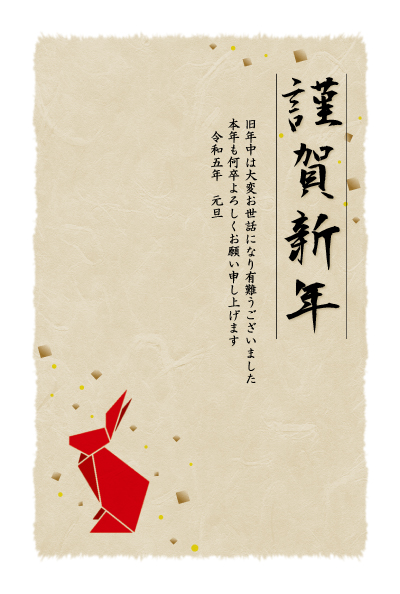 謹賀新年
旧年中は大変お世話になり有難うございました
本年も何卒よろしくお願い申し上げます
令和五年　元旦